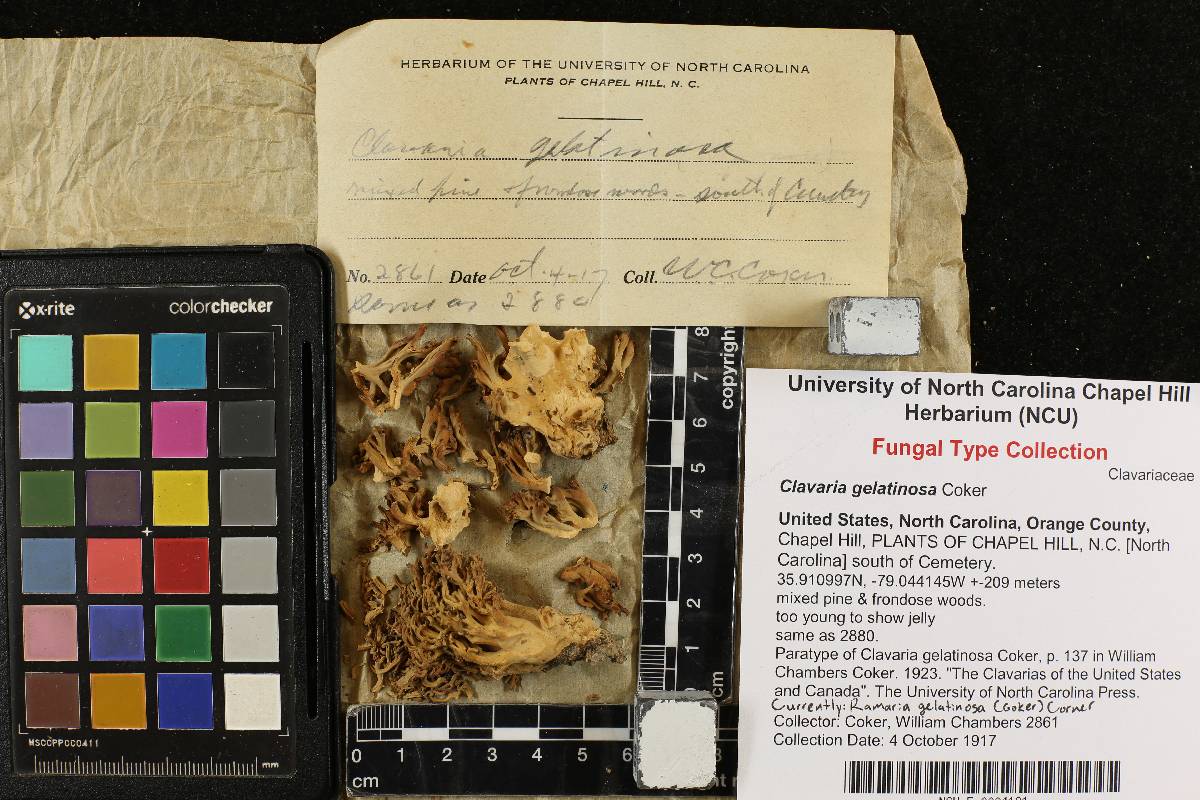 HERBARIUM OF THE UNIVERSITY OF NORTH CAROLINA
PLANTS OF CHAPEL HILL, N. C.
Clavaria gelatinosa
mixed pine & frondose woods - south of Cemetery
No. 2861 Date Oct. 4-17 Coll. W.C. Coker.
Same as 2880
x-rite colorchecker
MSCCPPCC0411
mm
8
7
6
5
4
3
2
1
cm
copyright
0 1 2 3 4 5 6
cm
University of North Carolina Chapel Hill
Herbarium (NCU)
Fungal Type Collection
Clavariaceae
Clavaria gelatinosa Coker
United States, North Carolina, Orange County,
Chapel Hill, PLANTS OF CHAPEL HILL, N.C. [North
Carolina] south of Cemetery.
35.910997N, -79.044145W +-209 meters
mixed pine & frondose woods.
too young to show jelly
same as 2880.
Paratype of Clavaria gelatinosa Coker, p. 137 in William
Chambers Coker. 1923. "The Clavarias of the United States
and Canada". The University of North Carolina Press.
Currently: Ramaria gelatinosa (Coker) Corner
Collector: Coker, William Chambers 2861
Collection Date: 4 October 1917